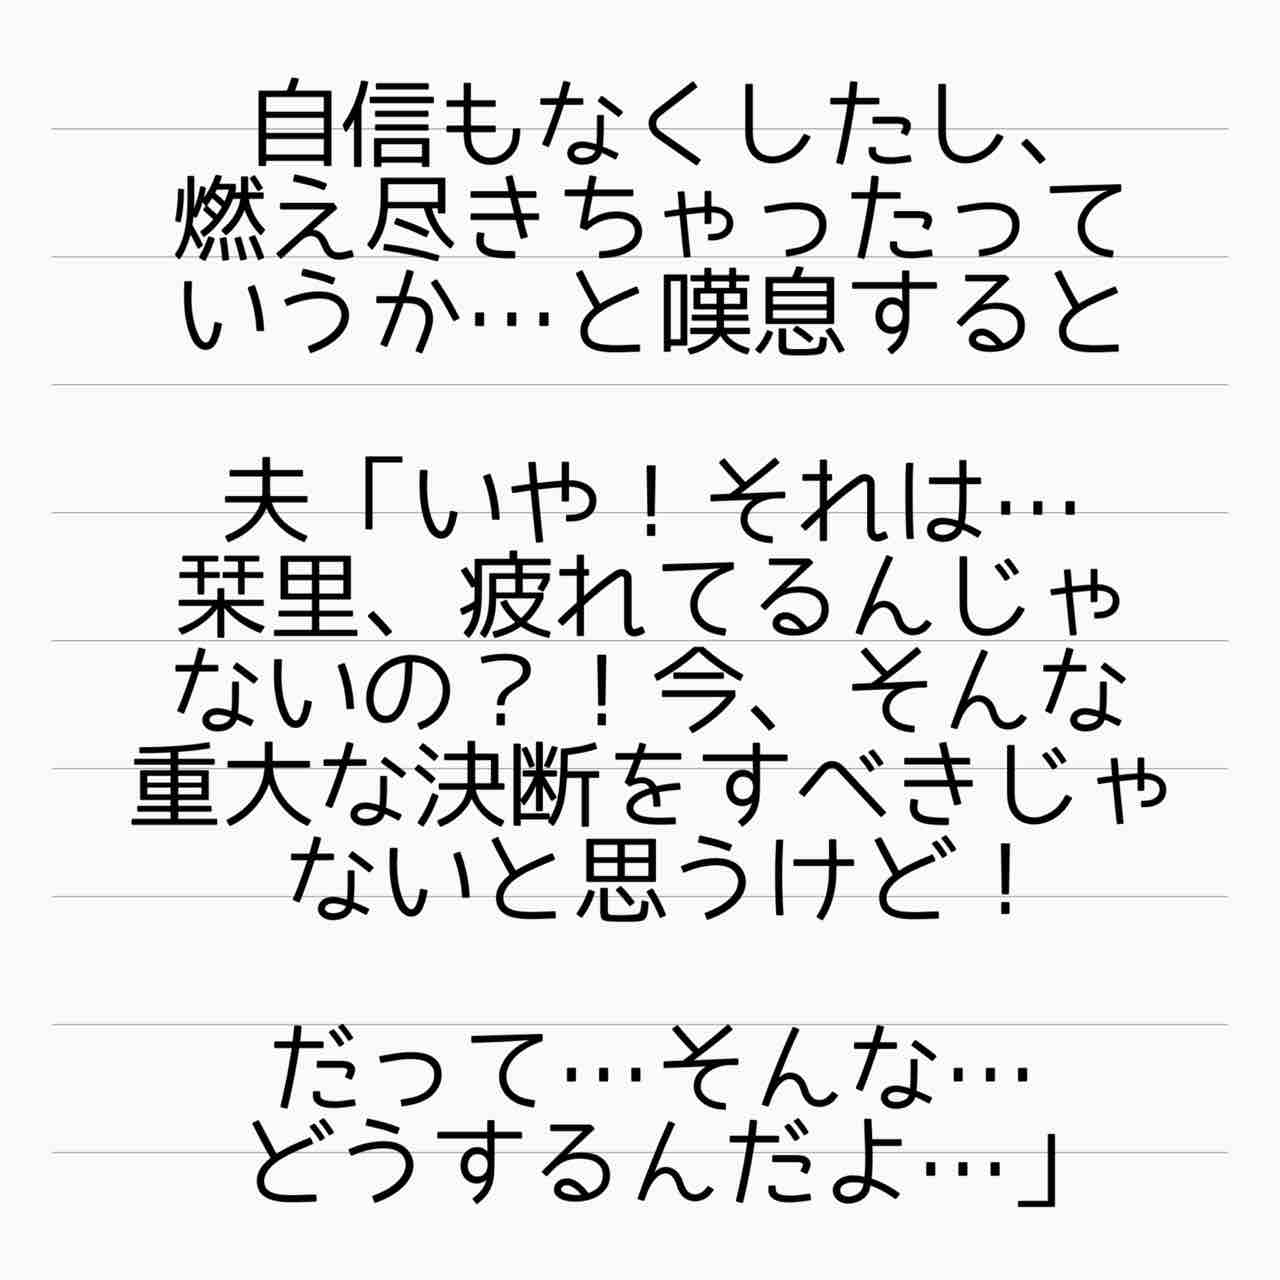 自信もなくしたし、
燃え尽きちゃったって
いうか…と嘆息すると
夫「いや！それは…
栞里、疲れてるんじゃ
ないの？！今、そんな
重大な決断をすべきじゃ
ないと思うけど！
だって…そんな…
どうするんだよ…」